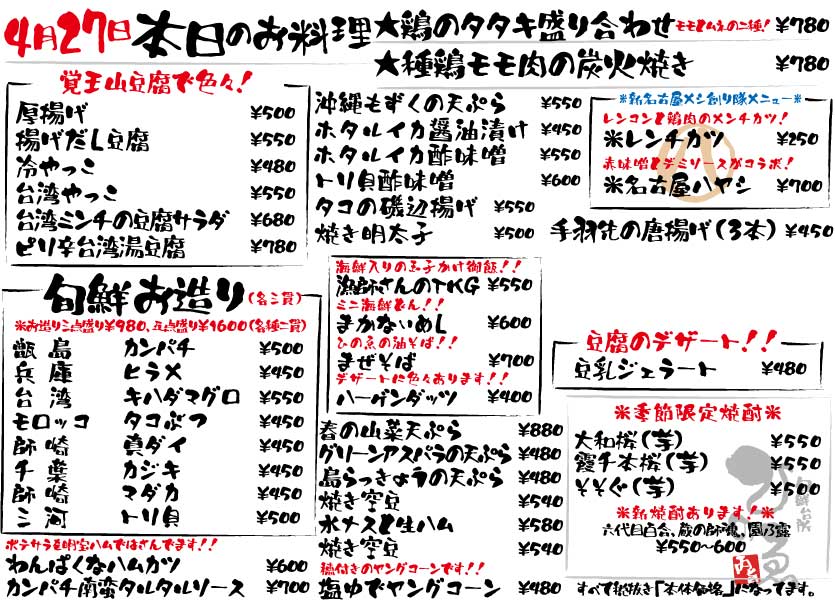 4月27日 本日のお料理
★鶏のタタキ盛り合わせ モモとムネの二種! ¥780
★種鶏モモ肉の炭火焼き ¥780
覚王山豆腐で色々!
厚揚げ ¥500
揚げだし豆腐 ¥550
冷やっこ ¥480
台湾やっこ ¥550
台湾ミンチの豆腐サラダ ¥680
ピリ辛台湾湯豆腐 ¥780
旬鮮お造り(各三貫)
※お造り三点盛り¥980、五点盛り¥1600(各種二貫)
甑島 カンパチ ¥500
兵庫 ヒラメ ¥450
台湾 キハダマグロ ¥550
モロッコ タコぶつ ¥450
師崎 真ダイ ¥450
千葉 カジキ ¥450
師崎 マダカ ¥450
三河 トリ貝 ¥500
ポテサラを明宝ハムではさんでます!!
わんぱくなハムカツ ¥600
カンパチ南蛮タルタルソース ¥700
沖縄もずくの天ぷら ¥550
ホタルイカ醤油漬け ¥450
ホタルイカ酢味噌 ¥550
トリ貝酢味噌 ¥600
タコの磯辺揚げ ¥550
焼き明太子 ¥500
海鮮入りの玉子かけ御飯!!
漁師さんのTKG ¥550
ミニ海鮮どん!!
まかないめし ¥600
ひの魚の油そば!!
まぜそば ¥700
デザートに色々あります!!
ハーゲンダッツ ¥400
春の山菜天ぷら ¥880
グリーンアスパラの天ぷら ¥480
島らっきょうの天ぷら ¥480
焼き空豆 ¥540
水ナスと生ハム ¥580
焼き空豆 ¥540
穂付きのヤングコーンです!!
塩ゆでヤングコーン ¥480
※新名古屋メシ創り隊メニュー※
レンコンと鶏肉のメンチカツ!
※レンチカツ ¥250
赤味噌とデミソースがコラボ!
※名古屋ハヤシ ¥700
手羽先の唐揚げ(3本) ¥450
豆腐のデザート!!
豆乳ジェラート ¥480
※季節限定焼酎※
大和桜(芋) ¥550
霞千本桜(芋) ¥550
そそぐ(芋) ¥500
※新焼酎あります!※
六代目百合、蔵の師魂、園乃露
¥550~600
旬鮮台所
すべて税抜き「本体価格」になってます。